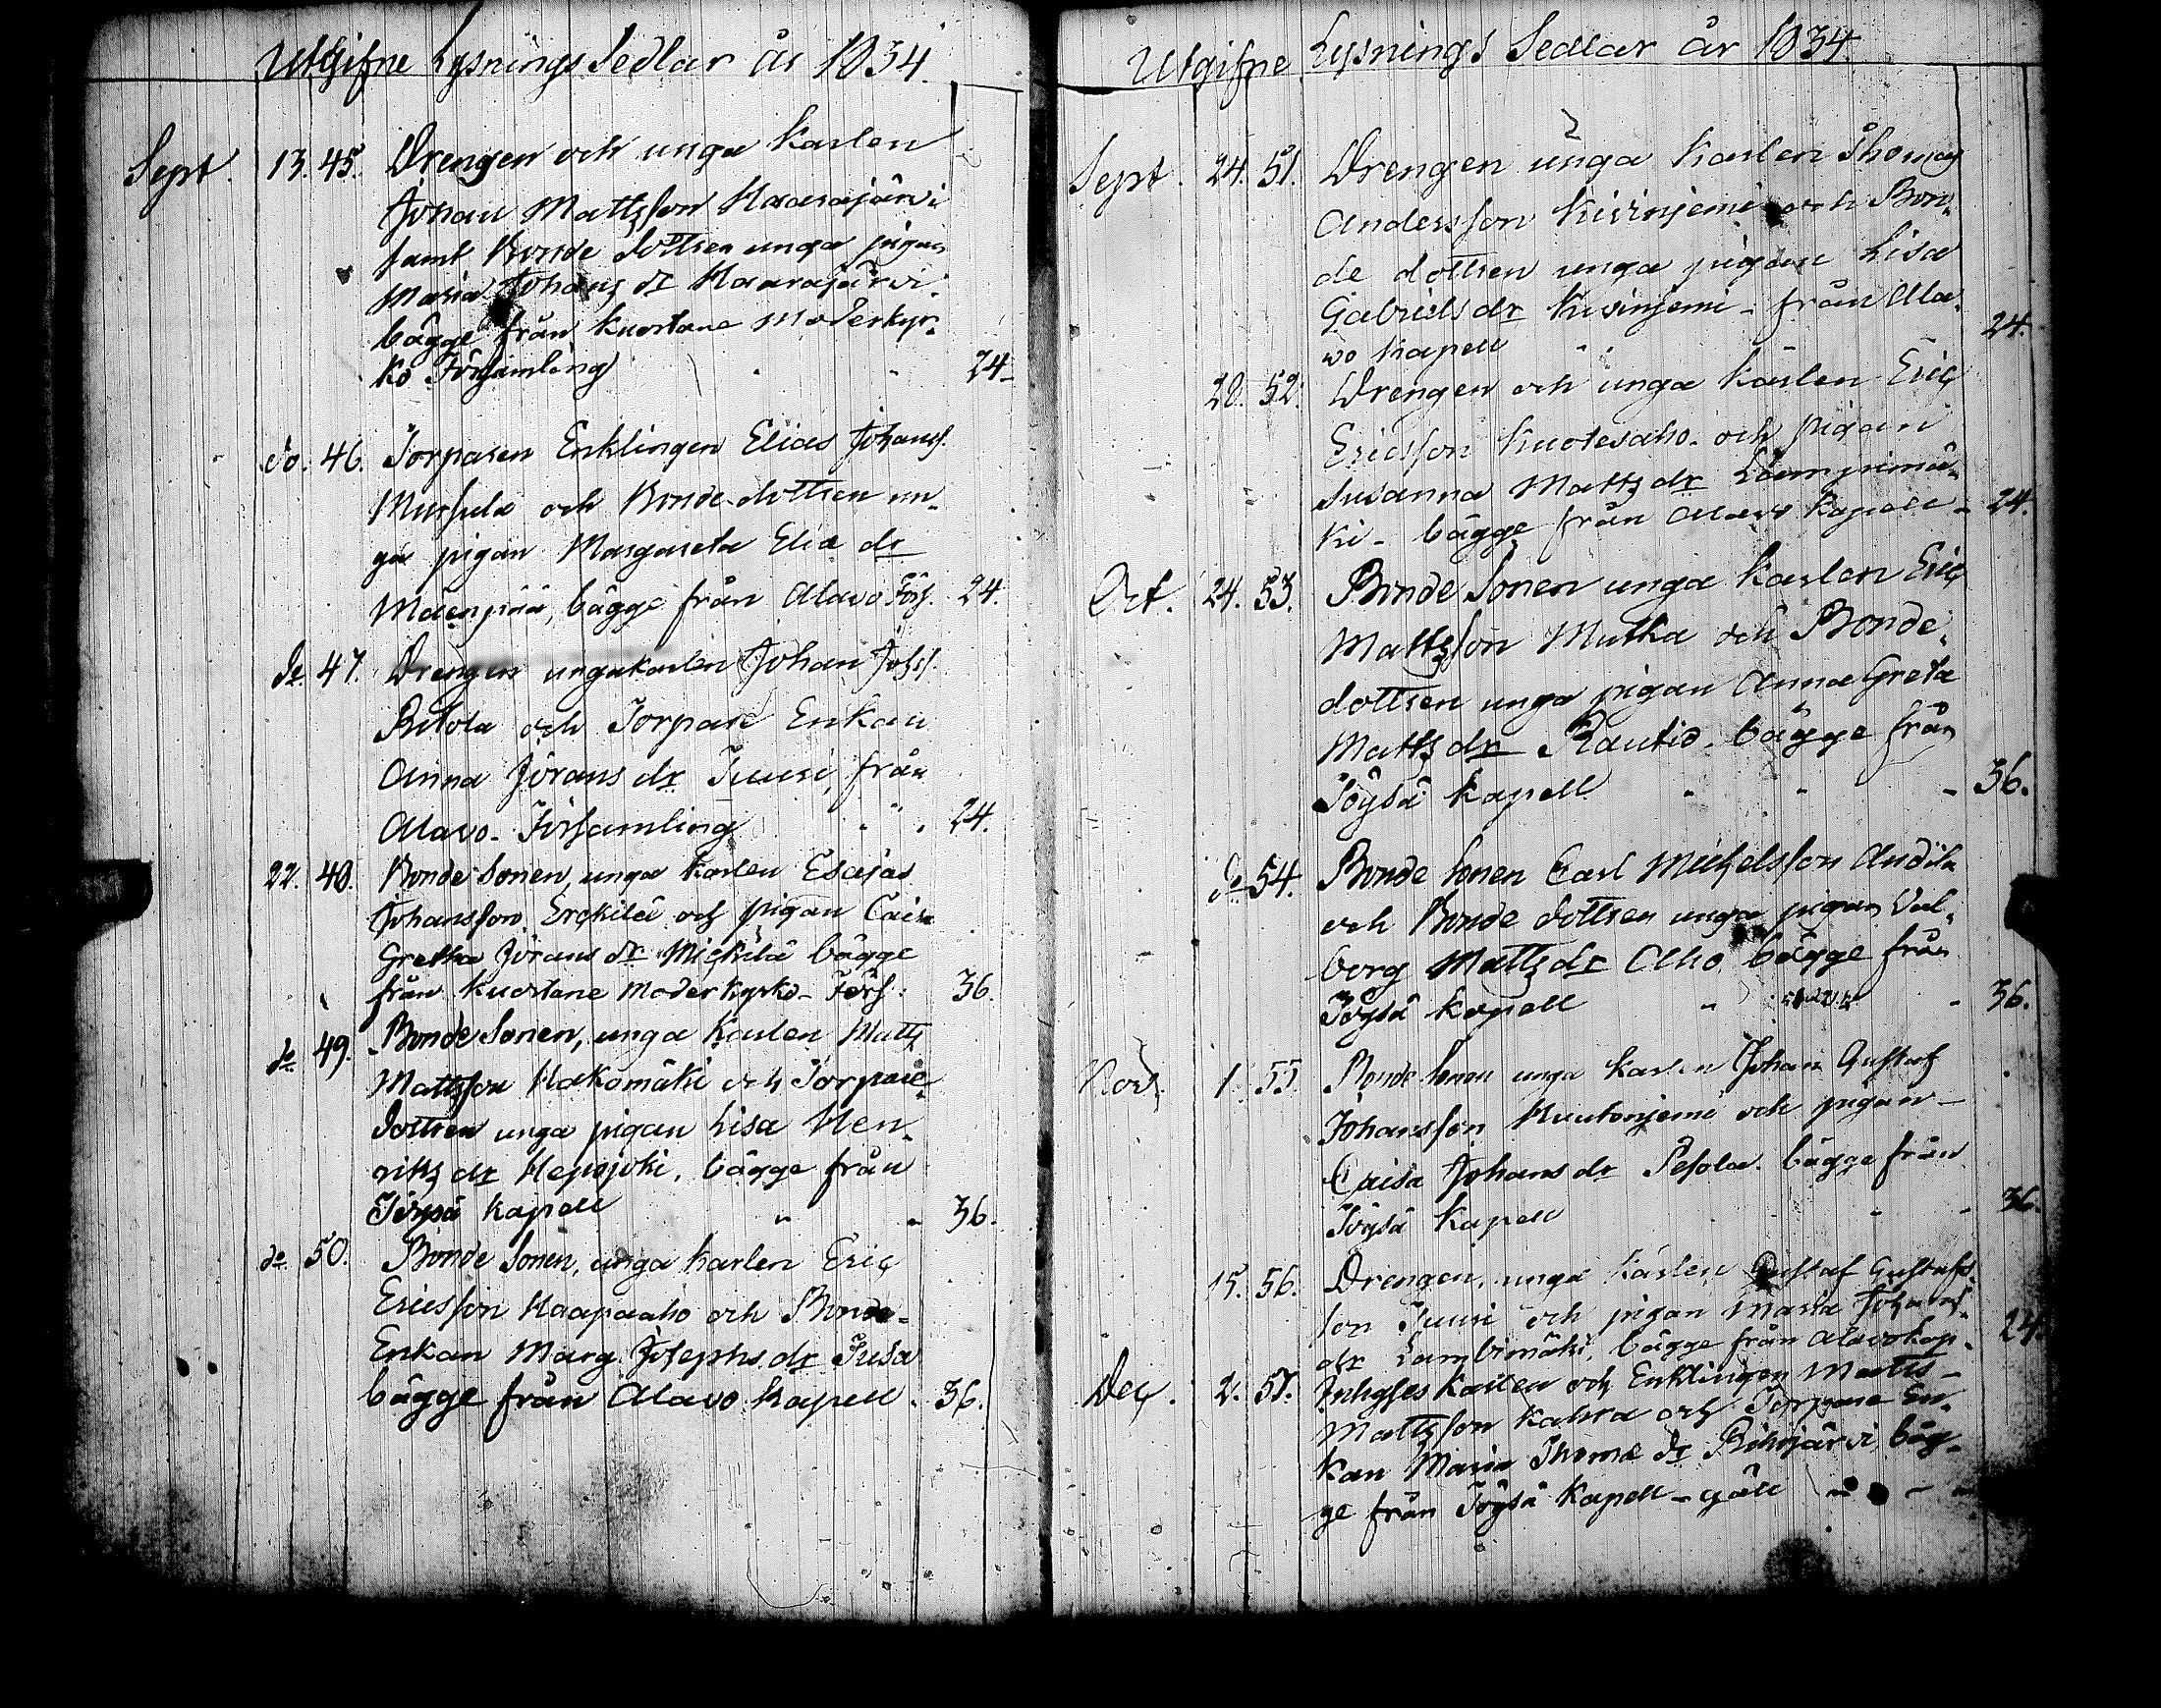 Utgifne Lysnings Sedlar år 1834.
Sept. 13. 45. Drengen och unga Karlen
Johan Mattsson Haarajärvi
samt Bonde dottren unga pigan
Maria Johans dr Haarajärvi
bägge från Kuortane Moderkyr-
ko Församling 24
do. 46. Torparen Enklingen Elias Johanss.
och Bonde dottren un-
ga pigan Margareta Elia dr
Mäenpää, bägge från Alavo Förs. 24.
do. 47. Drengen ungakarlen Johan Johss.
Ritola och Torpare Enkan
Anna Jörans dr Tuuri, från
Alavo Församling 24.
22. 48. Bonde Sonen, unga Karlen Esajas
Johansson Erckilä och pigan Caisa
Gretha Jörans dr Mickilä bägge
från Kuortane Moderkyrko Förs. 36.
do 49. Bonde Sonen, unga Karlen Matts
Mattsson Hakomäki och Torpare
dottren unga pigan Lisa Hen-
riks dr Hepojoki, bägge från
Töysä Kapell 36.
do. 50. Bonde Sonen, unga Karlen Eric
Ericsson Haapaaho och Bonde-
Enkan Marg. Josephs dr Tusa
bägge från Alavo Kapell. 36.
Utgifne Lysnings Sedlar år 1834.
Sept. 24. 51. Drengen unga Karlen Thomas
Andersson Kivinjemi och Bon-
de dottren unga pigan Lisa
Gabriels dr Kivinjemi - från Ala-
vo Kapell 24.
28. 52. Drengen och unga Karlen Eric
Ericsson Kuotesaho och pigan
Susanna Matts dr Lampimä-
ki - bägge från Alavo Kapell - 24.
Oct. 24. 53. Bonde Sonen unga Karlen Eric
Mattsson Mutka och Bonde-
dottren unga pigan Anna Greta
Matts dr Rautio bägge från
Töysä Kapell - 36.
do 54. Bonde Sonen Carl Michelsson Andila
och Bonde dottren unga pigan Val-
borg Matts dr Aho bägge från
Töysä Kapell - 36.
Nov. 1. 55. Bonde Sonen unga Karlen Johan Gustaf
Johansson Kuutonjemi och pigan
Caisa Johans dr Pesola bägge från
Töysä Kapell 36.
15. 56. Drengen, unga Karlen Gustaf Gustafs-
son Tuuri och pigan Maria Johans-
dr Lambimäki, bägge från Alavo kap. 24.
Dec. 2. 57. Inhyses Karlen och Enklingen Matts
Mattsson Kahra och Torpare En-
kan Maria Thomæ dr Pihjärvi, bäg-
ge från Töysä Kapell -